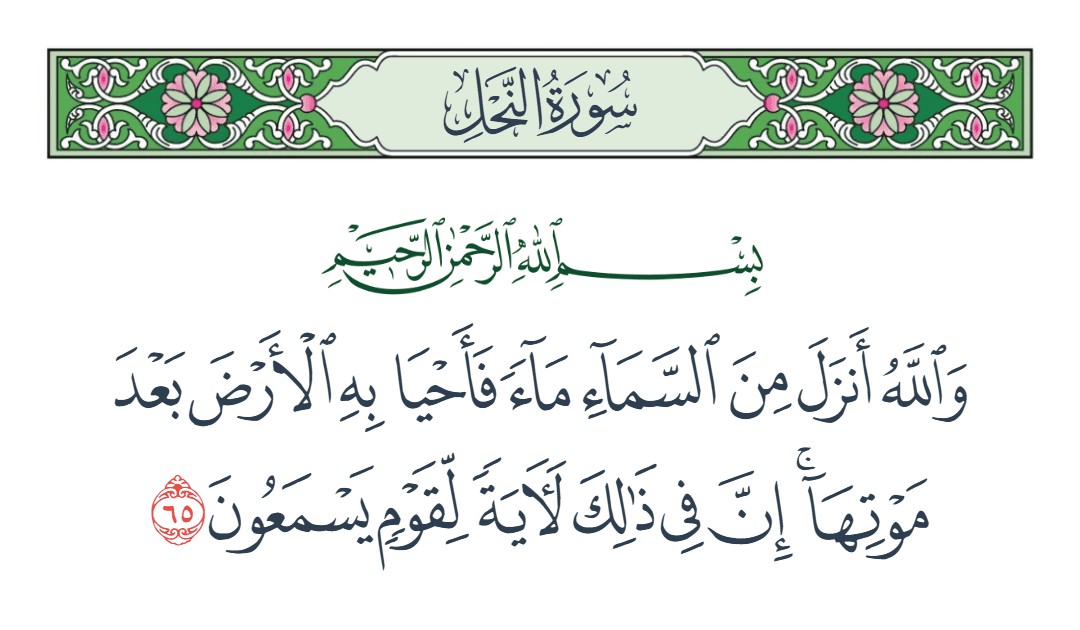 سُورَةُ النَّحْلِ
بِسْمِ ٱللَّهِ ٱلرَّحْمَٰنِ ٱلرَّحِيمِ
وَٱللَّهُ أَنزَلَ مِنَ ٱلسَّمَآءِ مَآءً فَأَحْيَا بِهِ ٱلْأَرْضَ بَعْدَ
مَوْتِهَآ ۚ إِنَّ فِى ذَٰلِكَ لَـَٔايَةً لِّقَوْمٍ يَسْمَعُونَ ٦٥